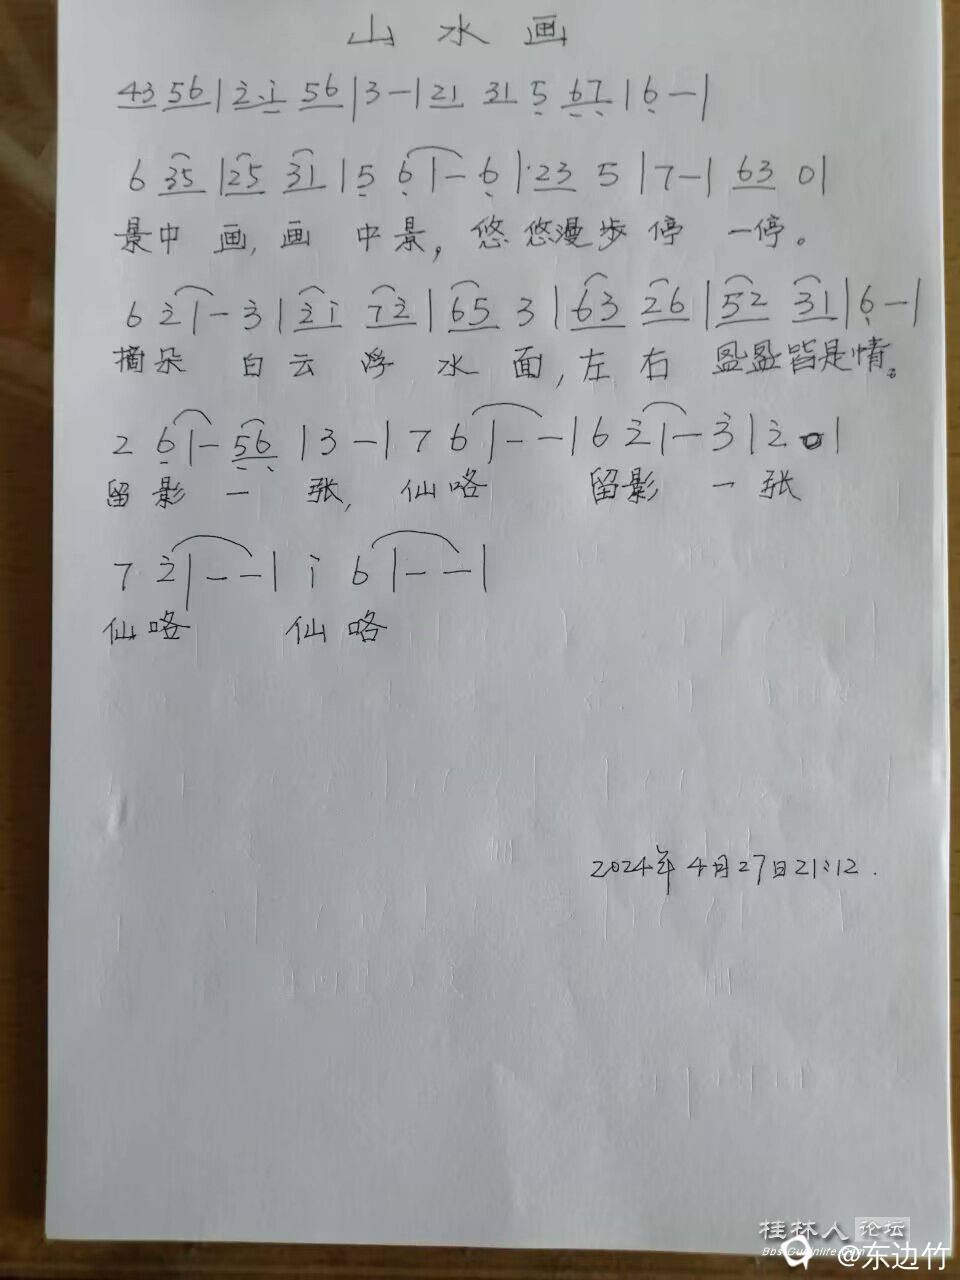 山水画
43 56 | 2̇·1̇ 56 | 3 - | 21 31 5̣ 6̣7̣ | 6̣ - |
6 35 | 25 31 | 5̣ 6̣ | - 6̣ | ·23 5 | 7 - | 63 0 |
景中画,画中景,悠悠漫步停一停。
6 2̇ | - 3 | 2̇1̇ 72̇ | 65 3 | 63 26 | 52 31 | 6̣ - |
摘朵白云浮水面,左右盈盈皆是情。
2 6̣ | - 5̣6̣ | 3 - | 7 6 | - - | 6 2̇ | - 3̇ | 2̇ 0 |
留影一张,仙咯 留影一张
7 2̇ | - - | 1̇ 6 | - - |
仙咯 仙咯
2024年4月27日21:12.
桂林人论坛
@东边竹